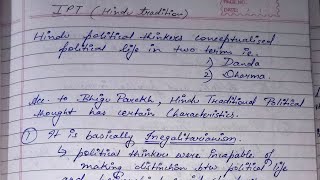 PAGE NO.:
DATE:
IPT (Hindu Tradition)
Hindu political thinkers conceptualised
political life in two terms i.e.
1) Danda
2) Dharma.
Acc. to Bhigu Parekh, Hindu Traditional Political
thought has certain Characteristics.
① It is basically Inegalitarianism.
↳ political thinkers were incapable of
making distinction btw political life
and